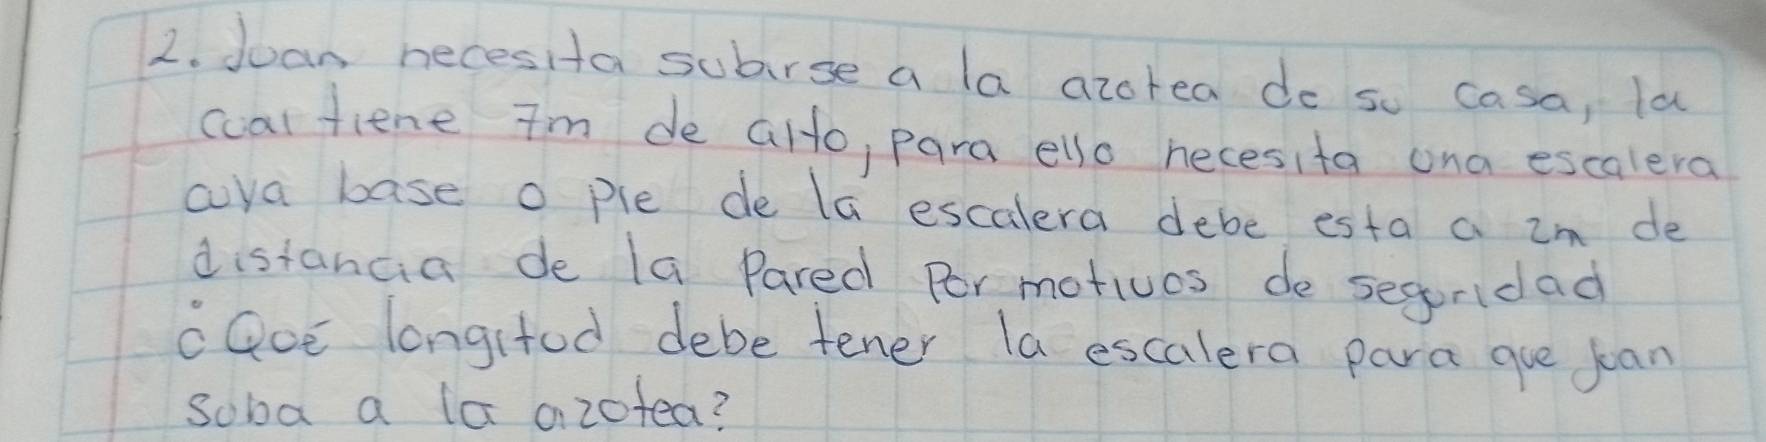 2. Juan necesita subirse a la azotea de su casa, la
cual tiene 7m de alto, para ello necesita una escalera
cuya base o pie de la escalera debe esta a 2m de
distancia de la Pared Por motivos de seguridad
¿Qué longitud debe tener la escalera para que Juan
suba a la azotea?